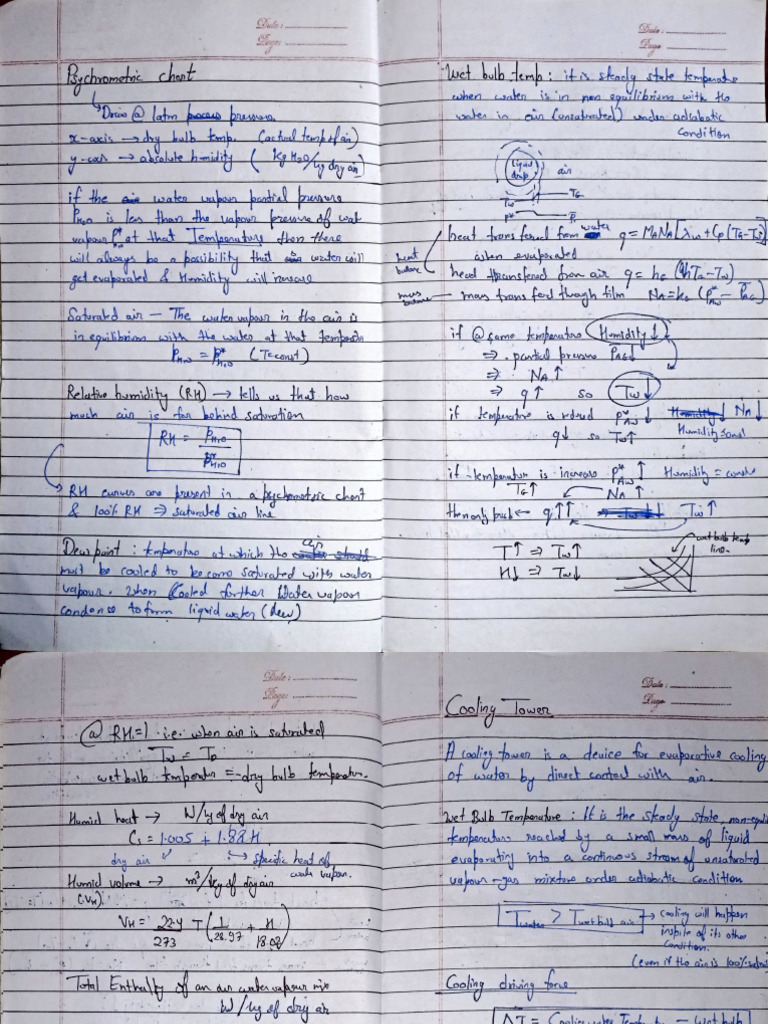 Date:
Page:
Psychrometric chart
Drawn @ 1atm pressure
x-axis → dry bulb temp. (actual temp of air)
y-axis → absolute humidity ( kg H2O/kg dry air)
if the water vapour partial pressure
PH2O is less than the vapour pressure of wat
vapour P* at that Temperature then there
will always be a possibility that water will
get evaporated & Humidity will increase
Saturated air — The water vapour in the air is
in equilibrium with the water at that temperatu
PH2O = P*H2O (T=const)
Relative humidity (RH) → tells us that how
much air is far behind saturation
RH = PH2O / P*H2O
RH curves are present in a psychometric chart
& 100% RH ⇒ saturated air line
Dew point : temperature at which the air
must be cooled to become saturated with water
vapour. when Cooled further Water vapour
condense to form liquid water (dew)
Date:
Page
Wet bulb temp : it is steady state temperatre
when water is in non equilibrium with the
water in air (unsaturated) under adiabatic
condition
liquid drop
air
Tw TG
heat transfered from water q = MANA[λw + Cp(TG-Tw)]
when evaporated
heat balance
heat transfered from air q = hG (TG-Tw)
mass balance — mass transfered through film NA=kG (P*AW - PAG)
if @ same temperature Humidity ↓
⇒ partial pressure PAG↓
⇒ NA ↑
⇒ q ↑ so Tw↓
if temperature is redued P*AW ↓ NA ↓
q↓ so Tw↑ Humidity = const
if temperature is increase P*AW ↑ Humidity = const
TG↑ NA ↑
q ↑↑ Tw ↑
T↑ ⇒ Tw↑
H↓ ⇒ Tw↓
wet bulb temp
line
@ RH=1 i.e. when air is saturated
Tw = TD
wet bulb temperatur = dry bulb temperatur.
Humid heat → W/kg of dry air
Cs = 1.005 + 1.88 H
dry air specific heat of
water vapour
Humid volume → m3/kg of dry air
(VH)
VH = 22.4/273 T (1/28.97 + H/18.02)
Total Enthalpy of an air water vapour mix
W/kg of dry air
Date:
Page:
Date:
Page
Cooling Tower
A cooling tower is a device for evaporative cooling
of water by direct contact with air.
Wet Bulb Temperature : It is the steady state, non-equili
temperature reached by a small mass of liquid
evaporating into a continous stream of unsaturated
vapour-gas mixture under adiabatic condition
Twater > Twet bulb air → cooling will happen
inspite of its other
condition.
(even if the air is 100%
Cooling driving force
ΔT = Cooling water Temp — wet bulb